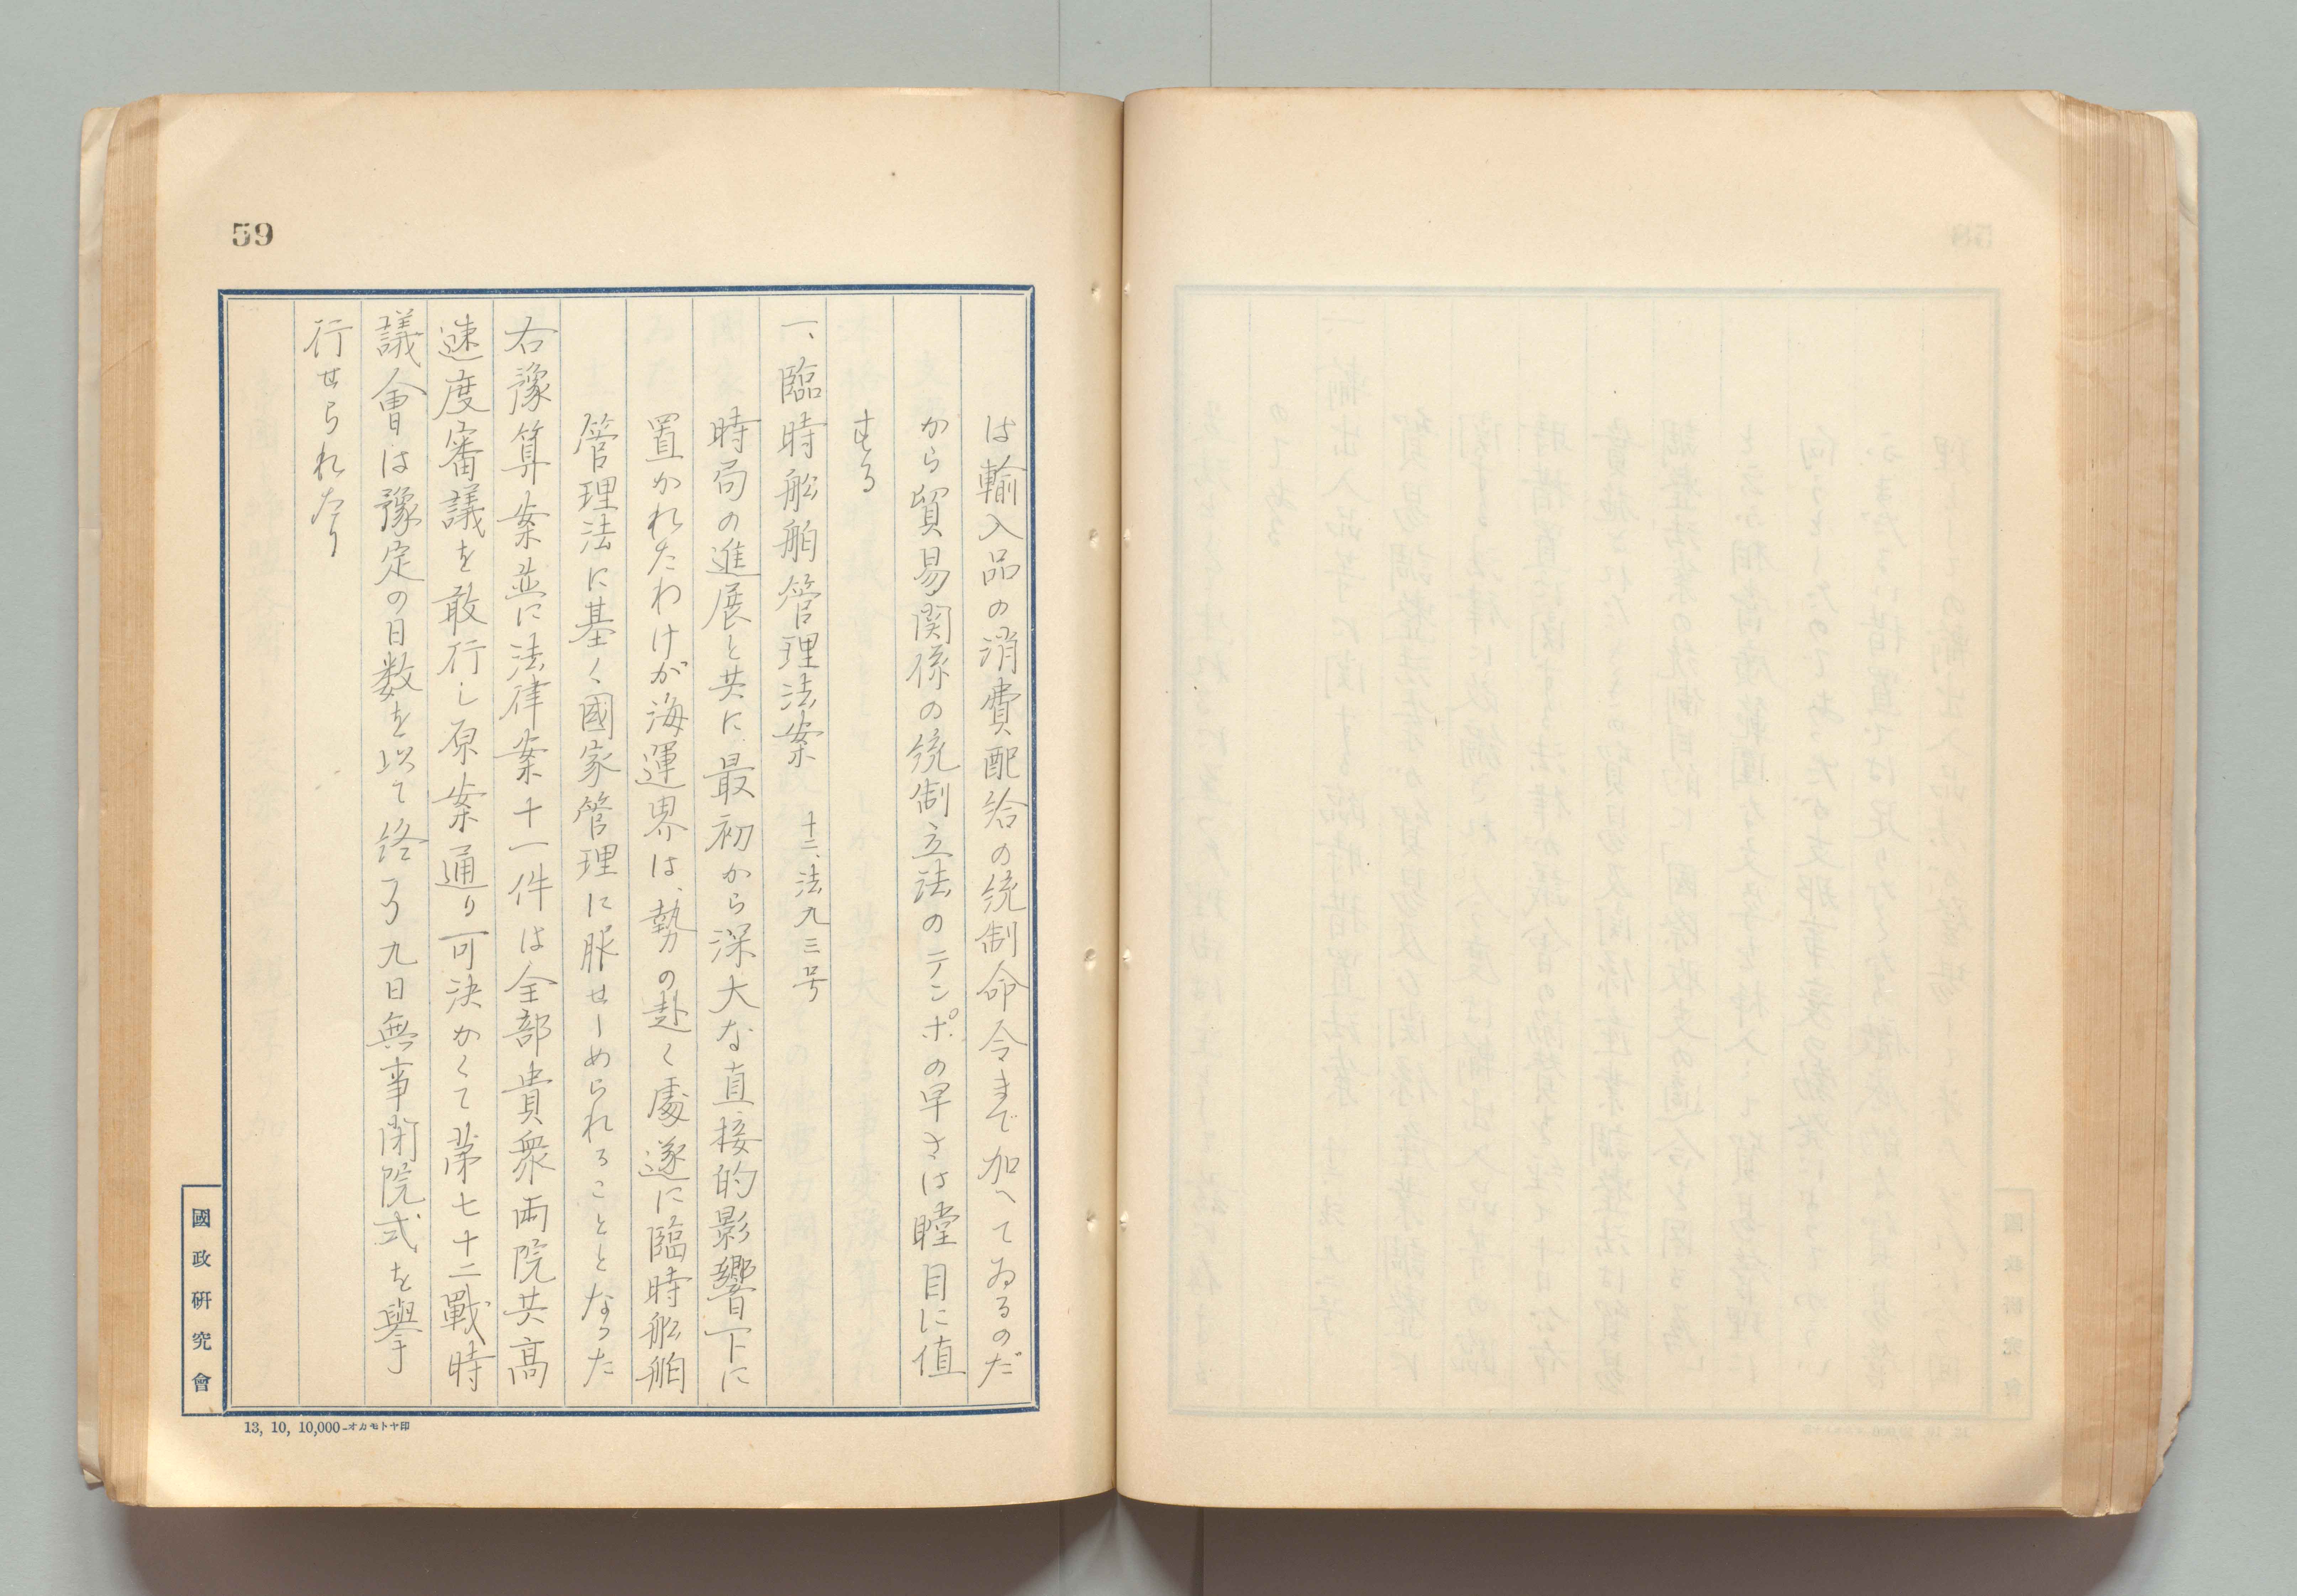 59
は輸入品の消費配給の統制命令まで加へてゐるのだ
から貿易関係の統制立法のテンポの早さは瞠目に値
する
一、臨時舩舶管理法案 十二、法九三号
時局の進展と共に最初から深大な直接的影響下に
置かれたわけが海運界は、勢の赴く處遂に臨時舩舶
管理法に基く國家管理に服せしめられることとなつた
右豫算案並に法律案十一件は全部貴衆両院共高
速度審議を敢行し原案通り可決かくて第七十二戰時
議會は豫定の日数を以て終了九日無事閉院式を擧
行せられたり
國政研究會
13, 10, 10,000-オカモトヤ印